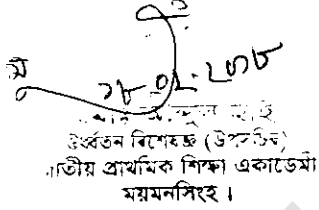 ১৮.০২.২০১৮
ঊর্ধ্বতন বিশেষজ্ঞ (উপসচিব)
জাতীয় প্রাথমিক শিক্ষা একাডেমী
ময়মনসিংহ।